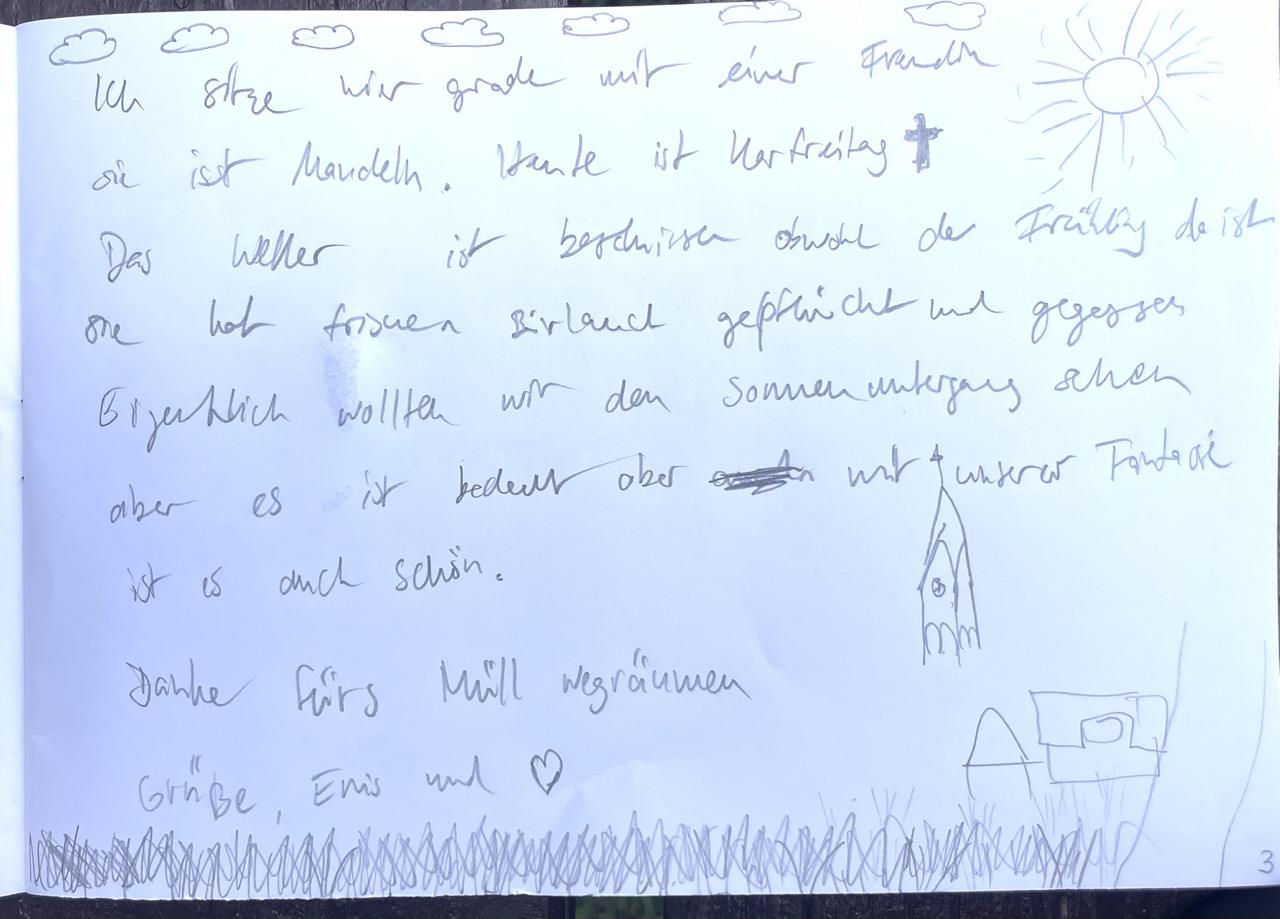 Ich sitze hier grade mit einer Freundin
sie isst Mandeln. Heute ist Karfreitag
Das Wetter ist beschissen obwohl der Frühling da ist
sie hat frischen Bärlauch gepflückt und gegessen
Eigentlich wollten wir den Sonnenuntergang sehen
aber es ist bedeckt aber mit unserer Fantasie
ist es auch schön.
Danke fürs Müll wegräumen
Grüße, Enis und ♡
3